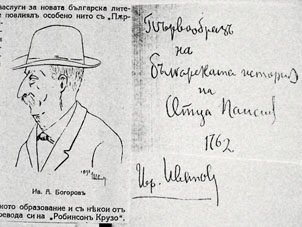 заслуги за новата българска лите-
повлиял особено нито съ "Пжр-
Ив. А. Богоровъ
ното образование и съ нѣкои отъ
ревода си на „Робинсонъ Крузо“.
Първообразъ
на
българската история
на
Отца Паисия
1762